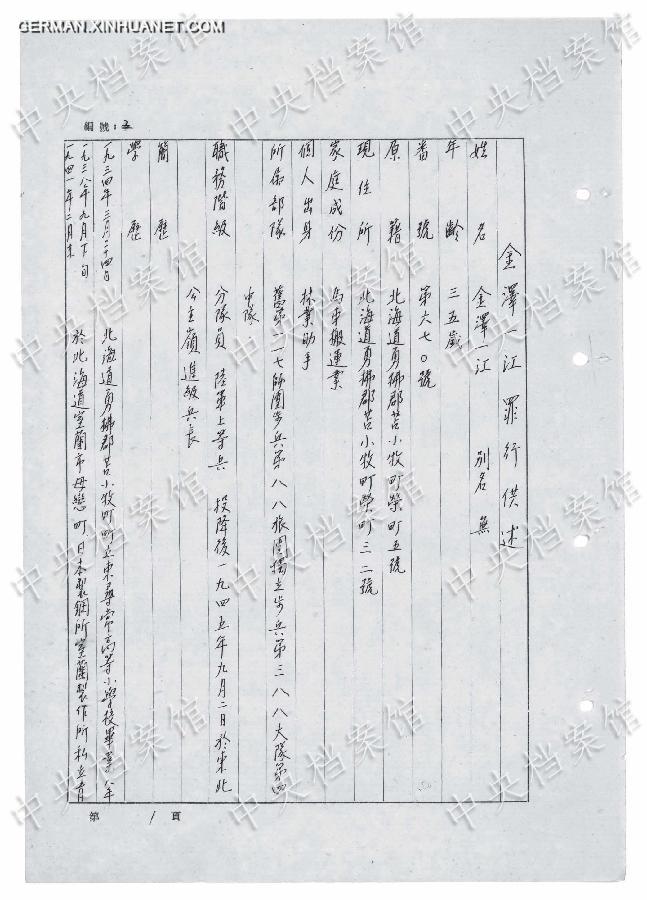 GERMAN.XINHUANET.COM
中央档案馆
編號:
金澤一江罪行供述
姓名 金澤一江 别名 無
年齡 三五歲
番號 第六七〇號
原籍 北海道勇拂郡苫小牧町榮町五號
現住所 北海道勇拂郡苫小牧町榮町三二號
家庭成份 馬車搬運業
個人出身 林業助手
所屬部隊 舊第一一七師團步兵第八八旅團獨立步兵第三八八大隊第四
中隊.
職務階級 分隊員 陸軍上等兵 投降後一九四五年九月二日於東北
公主嶺進級兵長
簡歷
學歷
一九三四年三月二十四日 北海道勇拂郡苫小牧町町立東尋常高等小學校畢業八年
一九三八年九月下旬
一九四一年二月末 於北海道室蘭市母戀町日本製鋼所室蘭製作所私立青
第 1 頁